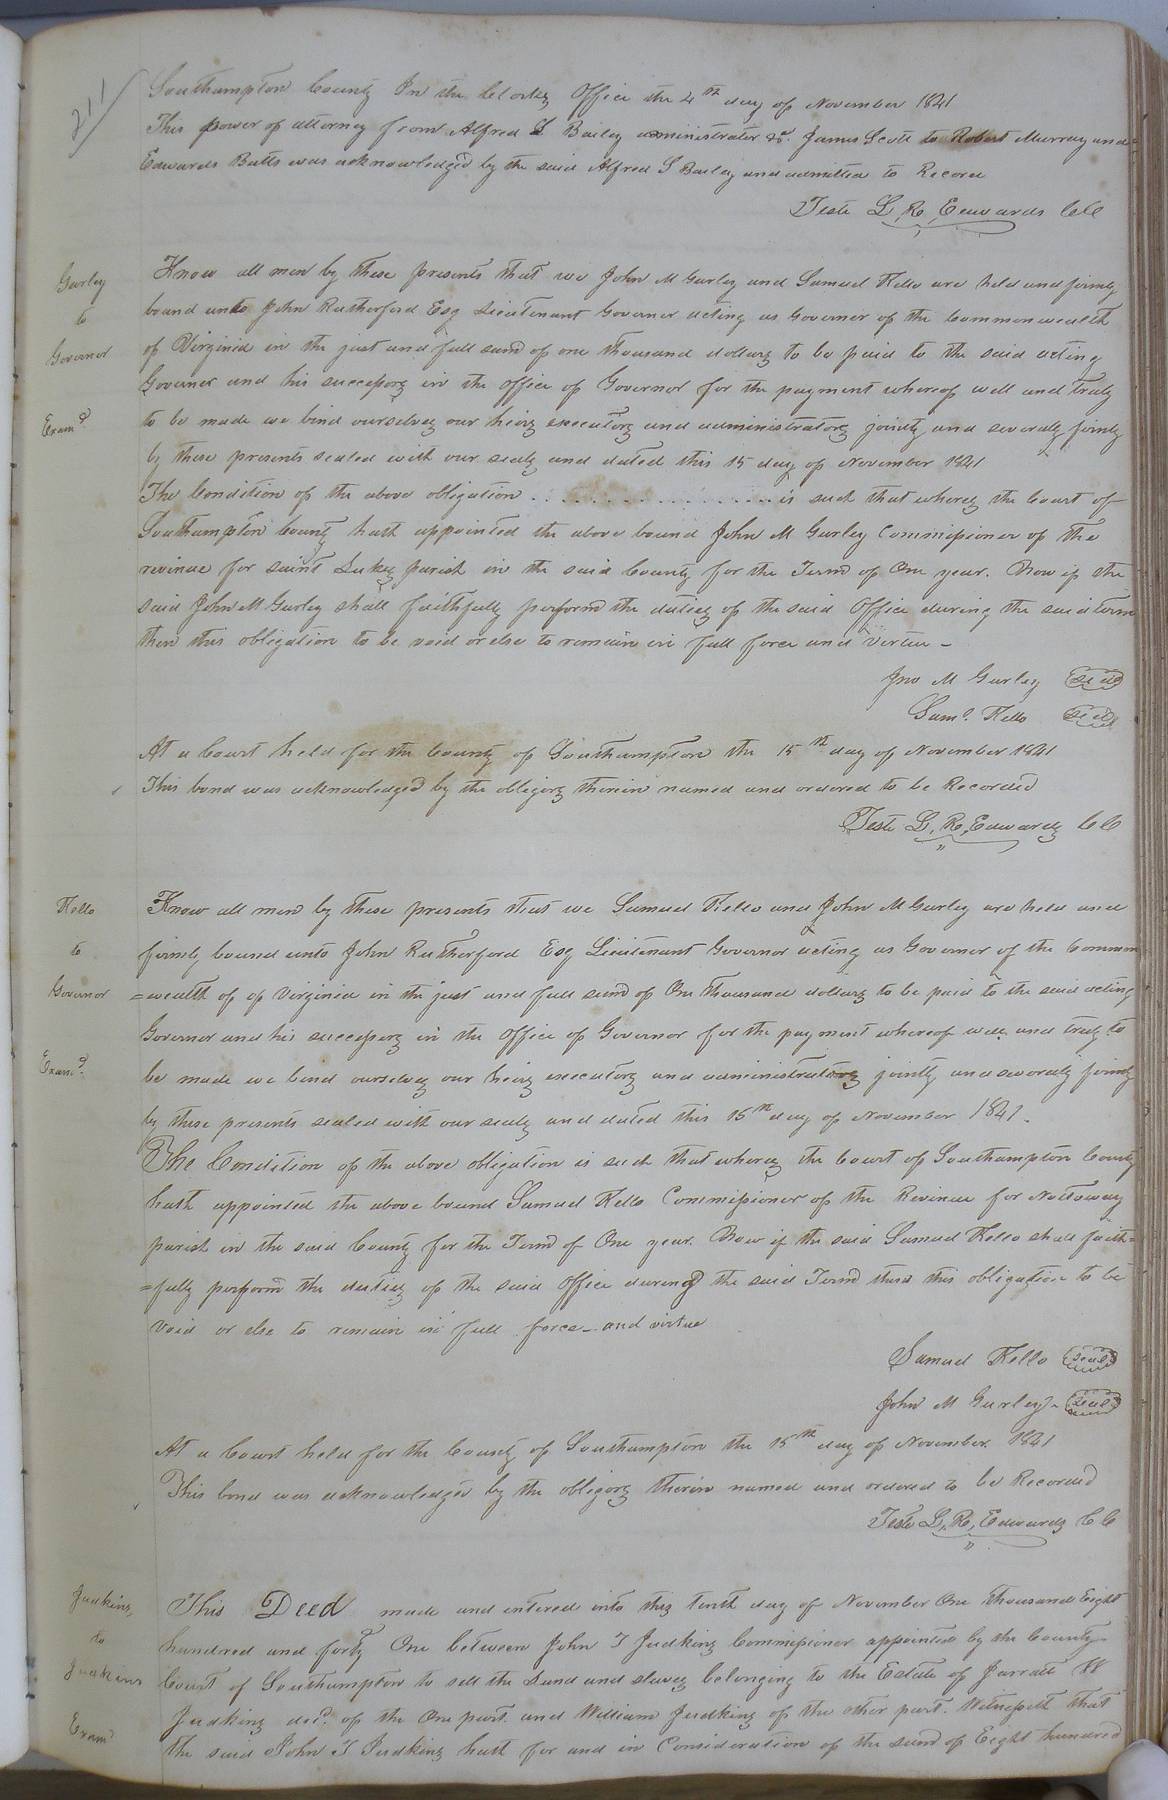 211
Southampton County In the Clerks Office the 4th day of November 1841
This power of attorney from Alfred S Bailey administrator &c. James Scott to Robert Murray and
Edwards Butts was acknowledged by the said Alfred S Bailey and admitted to Record
Teste L. R. Edwards CC
Gurley
to
Governor
Exam.d
Know all men by these presents that we John M Gurley and Samuel Kello are held and firmly
bound unto John Rutherford Esq Lieutenant Governor acting as Governor of the Commonwealth
of Virginia in the just and full sum of one thousand dollars to be paid to the said acting
Governor and his successors in the office of Governor for the payment whereof well and truly
to be made we bind ourselves our heirs executors and administrators jointly and severally firmly
by these presents sealed with our seals and dated this 15 day of November 1841
The Condition of the above obligation . . . . . . . . . . . . . is such that whereas the Court of
Southampton County hath appointed the above bound John M Gurley Commissioner of the
revinue for saint Lukes parish in the said County for the Term of One year. Now if the
said John M Gurley shall faithfully perform the duties of the said Office during the said term
then this obligation to be void or else to remain in full force and virtue -
Jno M Gurley seal
Saml. Kello seal
At a Court held for the County of Southampton the 15th day of November 1841
This bond was acknowledged by the obligors therein named and ordered to be Recorded
Teste L. R. Edwards CC
Kello
to
Governor
Exam.d
Know all men by these presents that we Samuel Kello and John M Gurley are held and
firmly bound unto John Rutherford Esq Lieutenant Governor acting as Governor of the Common
=wealth of of Virginia in the just and full sum of One thousand dollars to be paid to the said acting
Governor and his successors in the office of Governor for the payment whereof well and truly to
be made we bind ourselves our heirs executors and administrators jointly and severally firmly
by these presents sealed with our seals and dated this 15th day of November 1841.
The Condition of the above obligation is such that whereas the Court of Southampton County
hath appointed the above bound Samuel Kello Commissioner of the Revinue for Nottoway
parish in the said County for the Term of One year. Now if the said Samuel Kello shall faith=
=fully perform the duties of the said Office during the said Term then this obligation to be
void or else to remain in full force - and virtue
Samuel Kello seal
John M Gurley - seal
At a Court held for the County of Southampton the 15th day of November. 1841
This bond was acknowledged by the obligors therein named and ordered to be Recorded
Teste L. R. Edwards CC
Judkins,
to
Judkins
Exam.d
This Deed made and entered into this tenth day of November One thousand Eight
hundred and forty One between John T Judkins Commissioner appointed by the County
Court of Southampton to sell the Land and slaves belonging to the Estate of Jarratt W
Judkins dec.d of the One part and William Judkins of the other part. Witnesseth that
the said John T Judkins hath for and in Consideration of the sum of Eight hundred